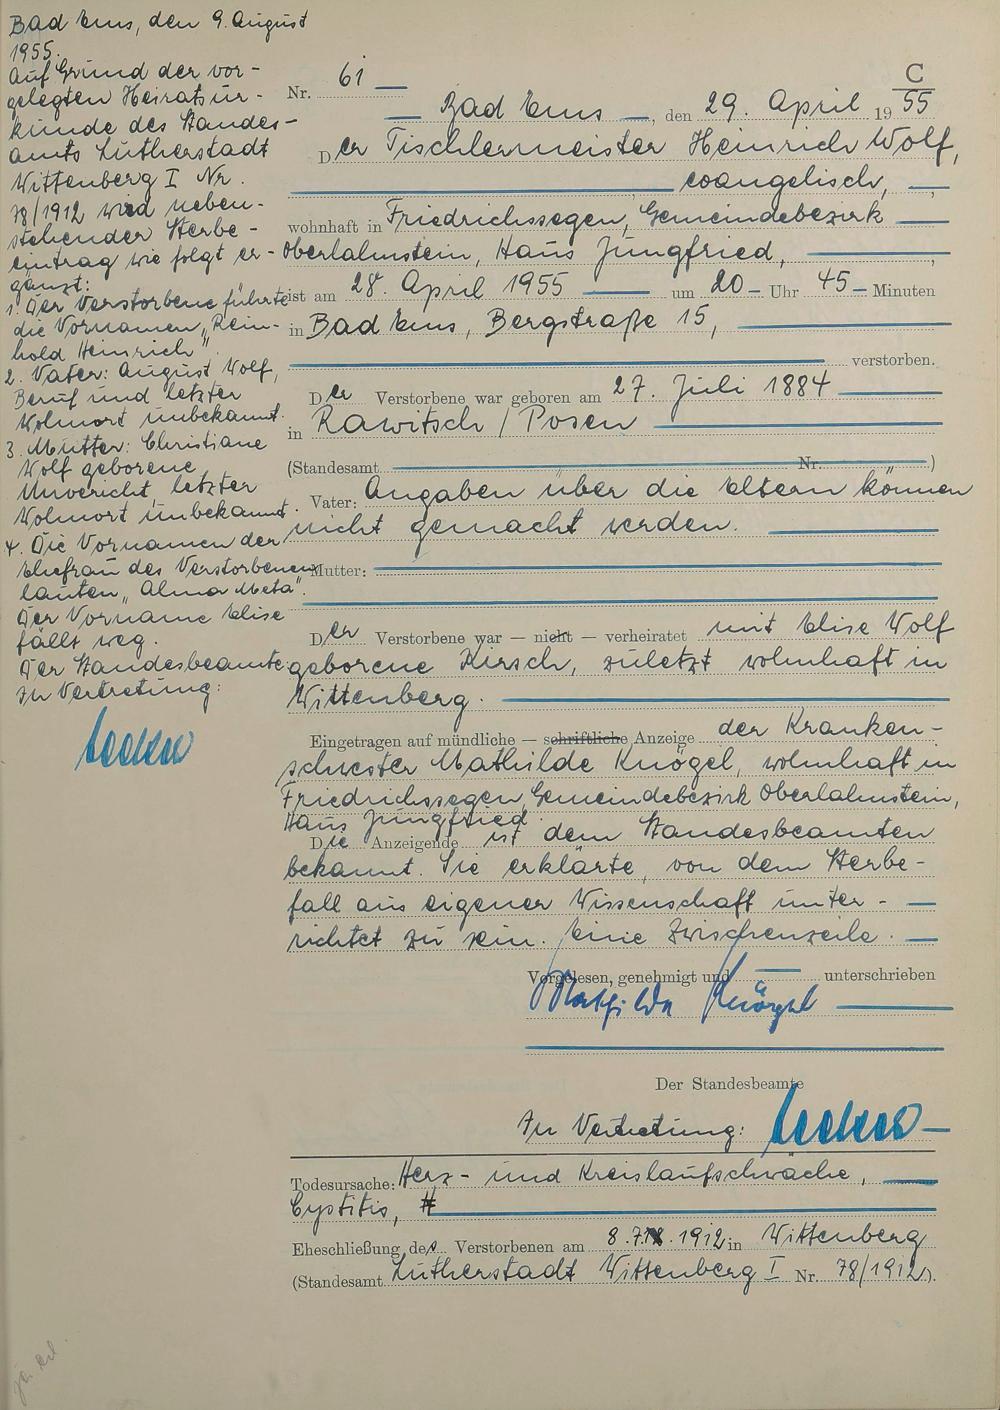 Bad Ems, den 9. August
1955.
Auf Grund der vor-
gelegten Heiratsur-
kunde des Standes-
amts Lutherstadt
Wittenberg I Nr.
78/1912 wird neben-
stehender Sterbe-
eintrag wie folgt er-
gänzt:
1. Der Verstorbene führte
die Vornamen „Rein-
hold Heinrich".
2. Vater: August Wolf,
Beruf und letzter
Wohnort unbekannt.
3. Mutter: Christiane
Wolf geborene
Unvericht, letzter
Wohnort unbekannt.
4. Die Vornamen der
Ehefrau des Verstorbenen
lauten „Alma Meta".
Der Vorname Elise
fällt weg.
Der Standesbeamte
In Vertretung:
C
Nr. 61
Bad Ems, den 29. April 1955
Der Tischlermeister Heinrich Wolf,
evangelisch,
wohnhaft in Friedrichssegen, Gemeindebezirk
Oberlahnstein, Haus Jungfried,
ist am 28. April 1955 um 20 Uhr 45 Minuten
in Bad Ems, Bergstraße 15,
verstorben.
Der Verstorbene war geboren am 27. Juli 1884
in Rawitsch / Posen
(Standesamt Nr. )
Vater: Angaben über die Eltern können
nicht gemacht werden.
Mutter:
Der Verstorbene war — nicht — verheiratet mit Elise Wolf
geborene Kirsch, zuletzt wohnhaft in
Wittenberg.
Eingetragen auf mündliche — schriftliche Anzeige der Kranken-
schwester Mathilde Knögel, wohnhaft in
Friedrichssegen, Gemeindebezirk Oberlahnstein,
Haus Jungfried.
Die Anzeigende ist dem Standesbeamten
bekannt. Sie erklärte, von dem Sterbe-
fall aus eigener Wissenschaft unter-
richtet zu sein. Eine Zwischenzeile.
Vorgelesen, genehmigt und unterschrieben
Mathilde Knögel
Der Standesbeamte
In Vertretung:
Todesursache: Herz- und Kreislaufschwäche,
Cystitis,
Eheschließung des Verstorbenen am 8.7. 1912 in Wittenberg
(Standesamt Lutherstadt Wittenberg I Nr. 78/1912).